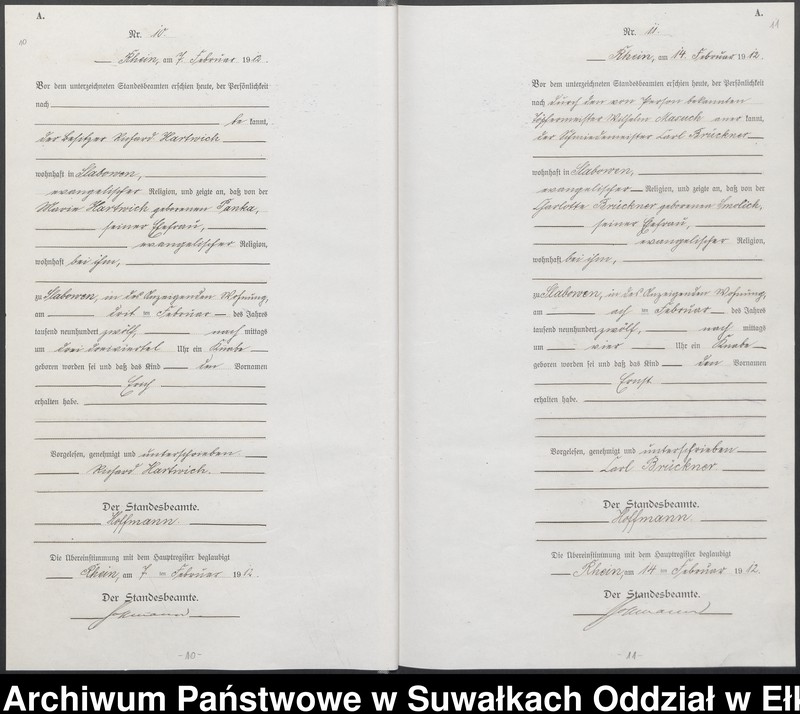 A.
10
Nr. 10.
Rhein, am 7. Februar 1912.
Vor dem unterzeichneten Standesbeamten erschien heute, der Persönlichkeit
nach
be kannt,
der Besitzer Richard Hartwich
wohnhaft in Slabowen,
evangelischer Religion, und zeigte an, daß von der
Marie Hartwich geborenen Panka,
seiner Ehefrau,
evangelischer Religion,
wohnhaft bei ihm,
zu Slabowen, in des Anzeigenden Wohnung,
am ten Februar des Jahres
tausend neunhundert zwölf, nach mittags
um drei dreiviertel Uhr ein Knabe
geboren worden sei und daß das Kind den Vornamen
Erich
erhalten habe.
Vorgelesen, genehmigt und unterschrieben
Richard Hartwich.
Der Standesbeamte.
Hoffmann
Die Übereinstimmung mit dem Hauptregister beglaubigt
Rhein, am 7 ten Februar 1912.
Der Standesbeamte.
Hoffmann
-10-
A.
11
Nr. 11.
Rhein, am 14. Februar 1912.
Vor dem unterzeichneten Standesbeamten erschien heute, der Persönlichkeit
nach durch den von Person bekannten
Töpfermeister Wilhelm Masuch aner kannt,
der Schmiedemeister Carl Brückner
wohnhaft in Slabowen,
evangelischer Religion, und zeigte an, daß von der
Charlotte Brückner geborenen Smolich,
seiner Ehefrau,
evangelischer Religion,
wohnhaft bei ihm,
zu Slabowen, in des Anzeigenden Wohnung,
am ach ten Februar des Jahres
tausend neunhundert zwölf, nach mittags
um vier Uhr ein Knabe
geboren worden sei und daß das Kind den Vornamen
Ernst
erhalten habe.
Vorgelesen, genehmigt und unterschrieben
Carl Brückner
Der Standesbeamte.
Hoffmann
Die Übereinstimmung mit dem Hauptregister beglaubigt
Rhein, am 14 ten Februar 1912.
Der Standesbeamte.
Hoffmann
-11-
Archiwum Państwowe w Suwałkach Oddział w Ełk